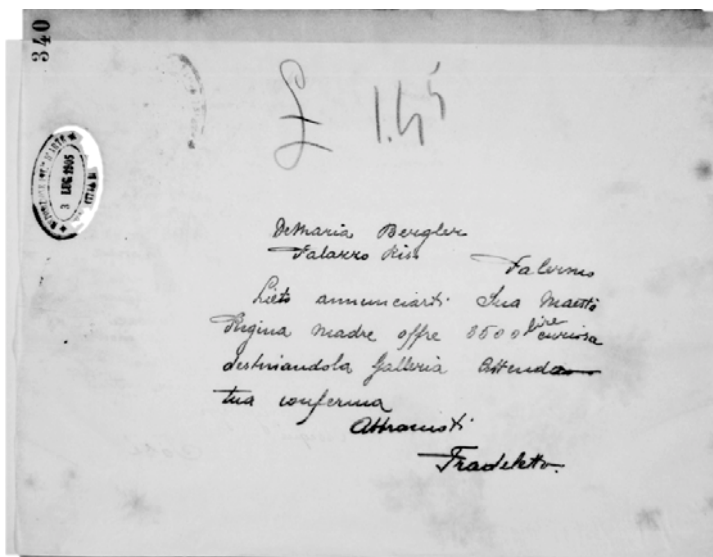 340
£ 1.45
3 LUG 1905
DeMaria Bergler
Palazzo Riso Palermo
Lieto annunciarti Sua Maestà
Regina madre offre 3500 lire curiosa
destinandola Galleria Attendo
tua conferma
Fradeletto.